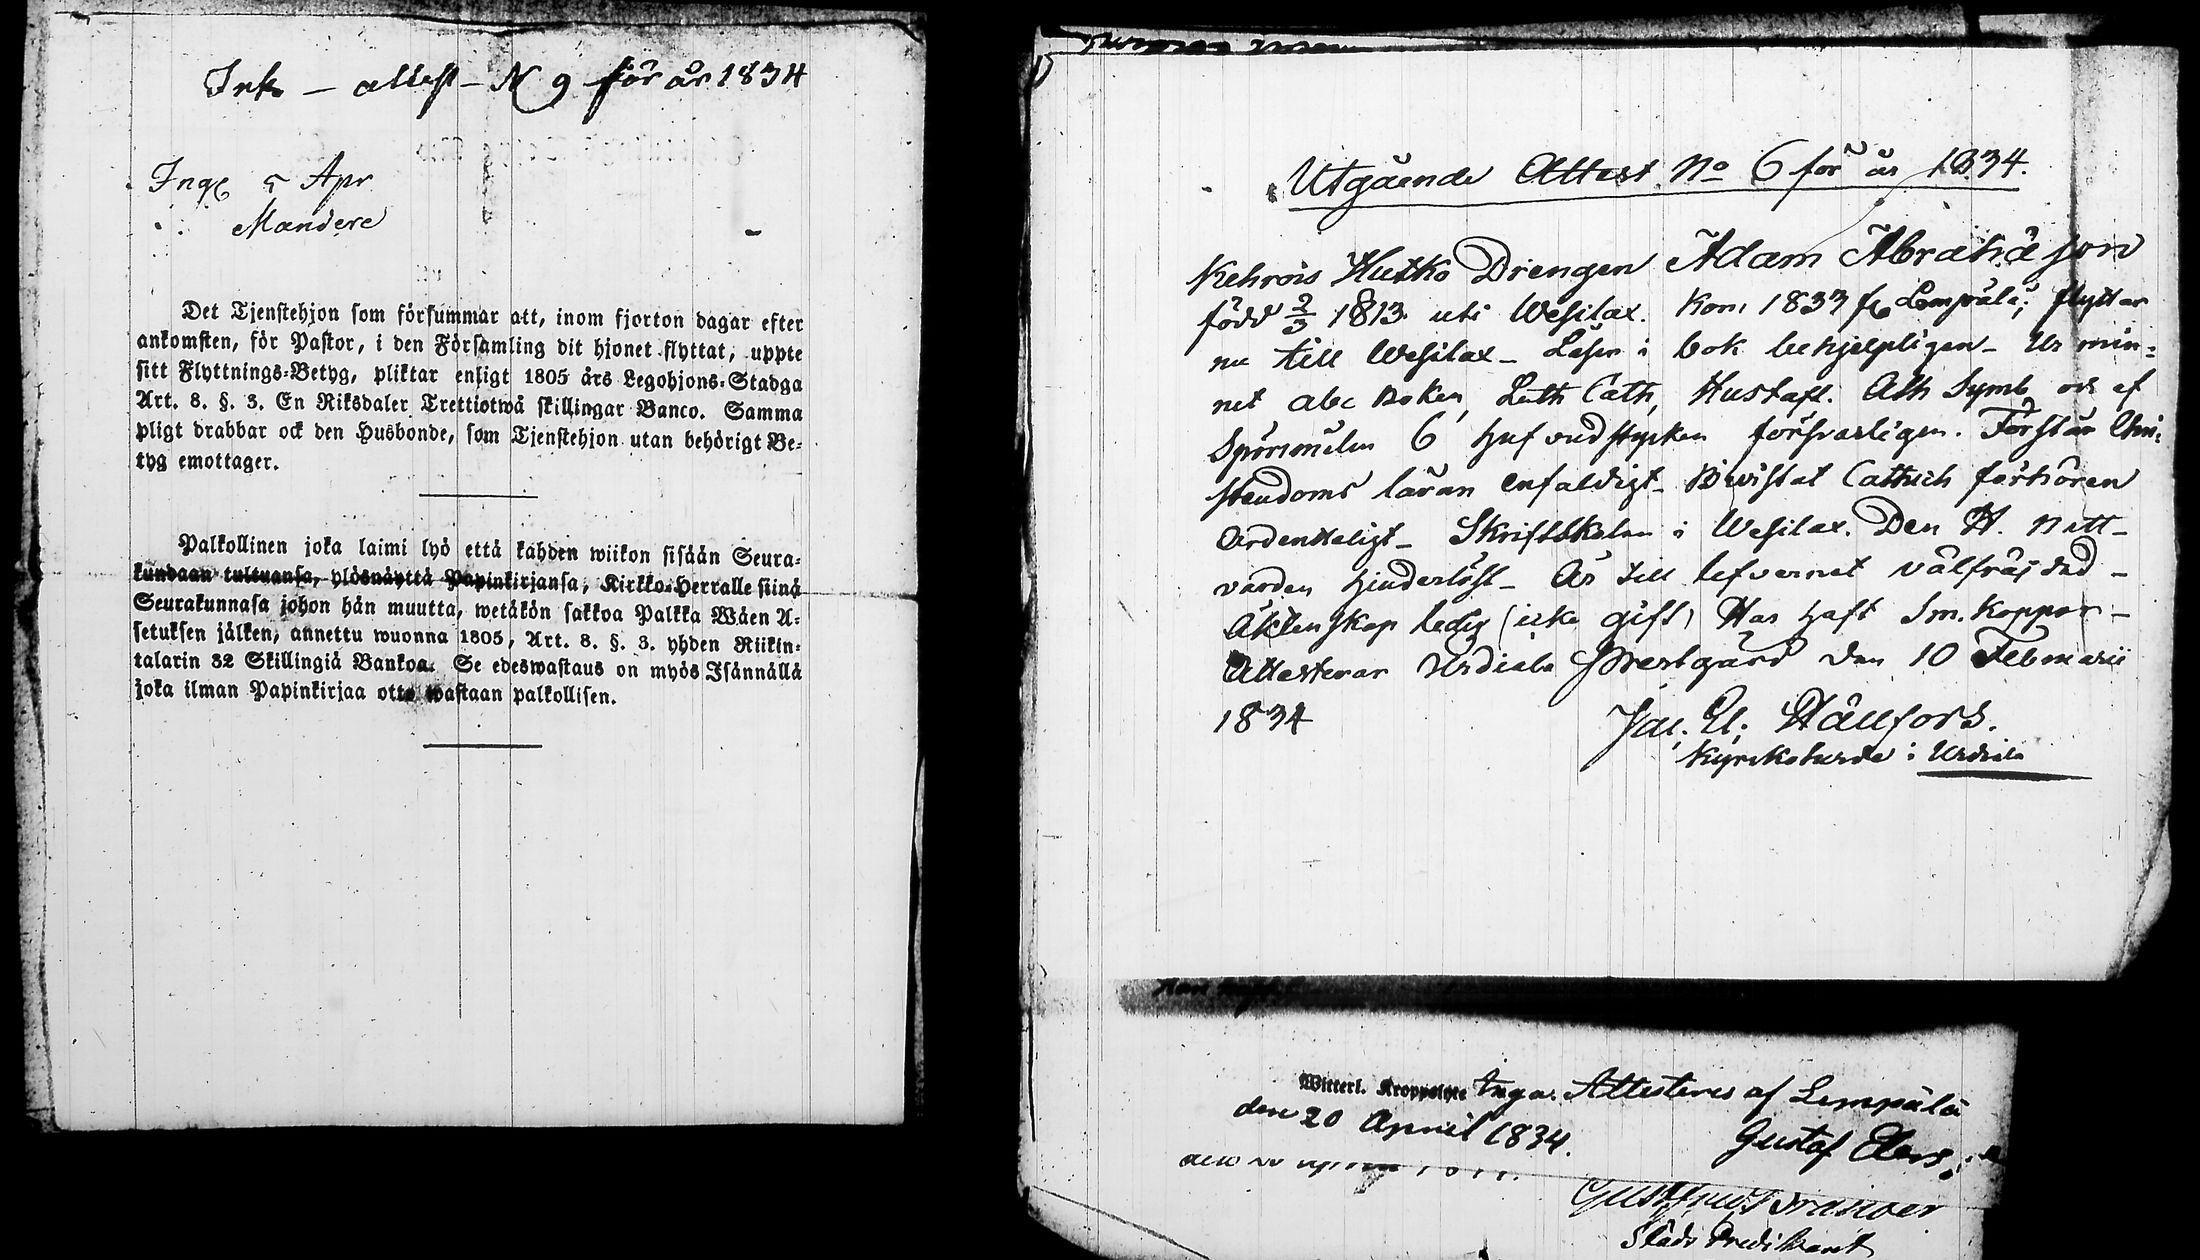 Ink – attest – N 9 för år 1834
Ing 5 Apr
Mandere
Det Tjenstehjon som försummar att, inom fjorton dagar efter
ankomsten, för Pastor, i den Församling dit hjonet flyttat, uppte
sitt Flyttnings-Betyg, pliktar enligt 1805 års Legohjons-Stadga
Art. 8. §. 3. En Riksdaler Trettiotwå skillingar Banco. Samma
pligt drabbar ock den Husbonde, som Tjenstehjon utan behörigt Be-
tyg emottager.
Palkollinen joka laimi lyö että kahden wiikon sisään Seura-
kundaan tultuansa, ylösnäyttä Papinkirjansa, Kirkko-Herralle siinä
Seurakunnasa johon hän muutta, wetäkön sakkoa Palkka Wäen A-
setuksen jälken, annettu wuonna 1805, Art. 8. §. 3. yhden Riikin-
talarin 32 Skillingiä Bankoa. Se edeswastaus on myös Isännällä
joka ilman Papinkirjaa otta wastaan palkollisen.
Utgående Attest No 6 för år 1834.
Kehrois Hutko Drengen Adam Abrahason
född 2/3 1813 uti Wesilax. Kom 1833 fr Lempälä; flyttar
nu till Wesilax – Läser i bok behjelpligen – Ur min-
net abc Boken, Luth Cath, Hustafl. Ath Symb, och af
Spörsmålen 6 hufvudstycken försvarligen. Förstår Chri-
stendoms läran enfaldigt – Bivistat Cathich förhören
Ordenteligt – Skriftskolan i Wesilax. Den H. Natt-
varden hinderlöst – Är till lefvernet välfräjdad –
Äktenskap ledig (icke gift) Har haft Sm. Koppor –
Attesterar Urdiala Prestgård den 10 Februarii
1834 Jac. El. Hällfors.
Kyrkoherde i Urdiala
Witterl. Attesteras af Lempälä
den 20 April 1834. Gustaf
Stads Predikant